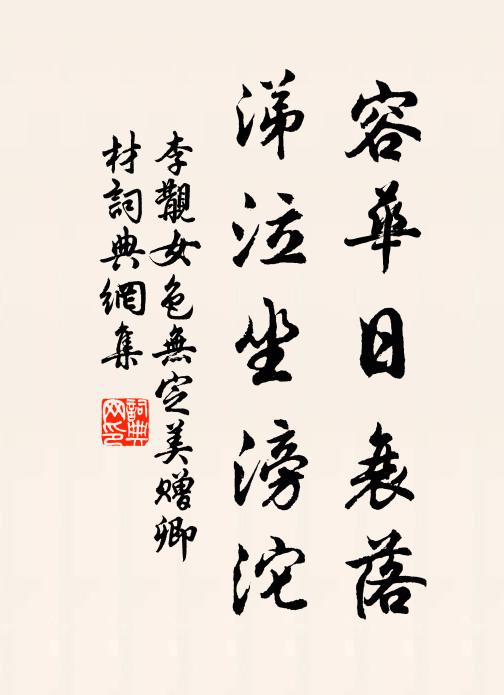 容華日衰落
涕泣坐滂沱
李覯女色無定美贈卿
材詞典網集
詞典
网印